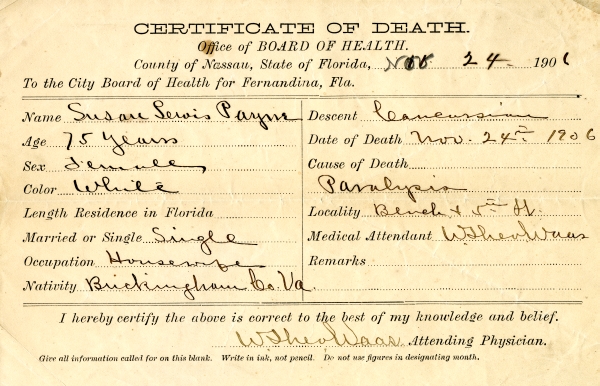 CERTIFICATE OF DEATH.
Office of BOARD OF HEALTH.
County of Nassau, State of Florida, Nov. 24. 1906
To the City Board of Health for Fernandina, Fla.
Name Susan Lewis Payne
Age 75 Years
Sex Female
Color White
Length Residence in Florida
Married or Single Single
Occupation Housewife
Nativity Buckingham Co. Va.
Descent Caucussian
Date of Death Nov. 24th 1906
Cause of Death
Paralysis
Locality Beech & 5th St.
Medical Attendant W. Theo Waas
Remarks
I hereby certify the above is correct to the best of my knowledge and belief.
W. Theo Waas Attending Physician.
Give all information called for on this blank. Write in ink, not pencil. Do not use figures in designating month.